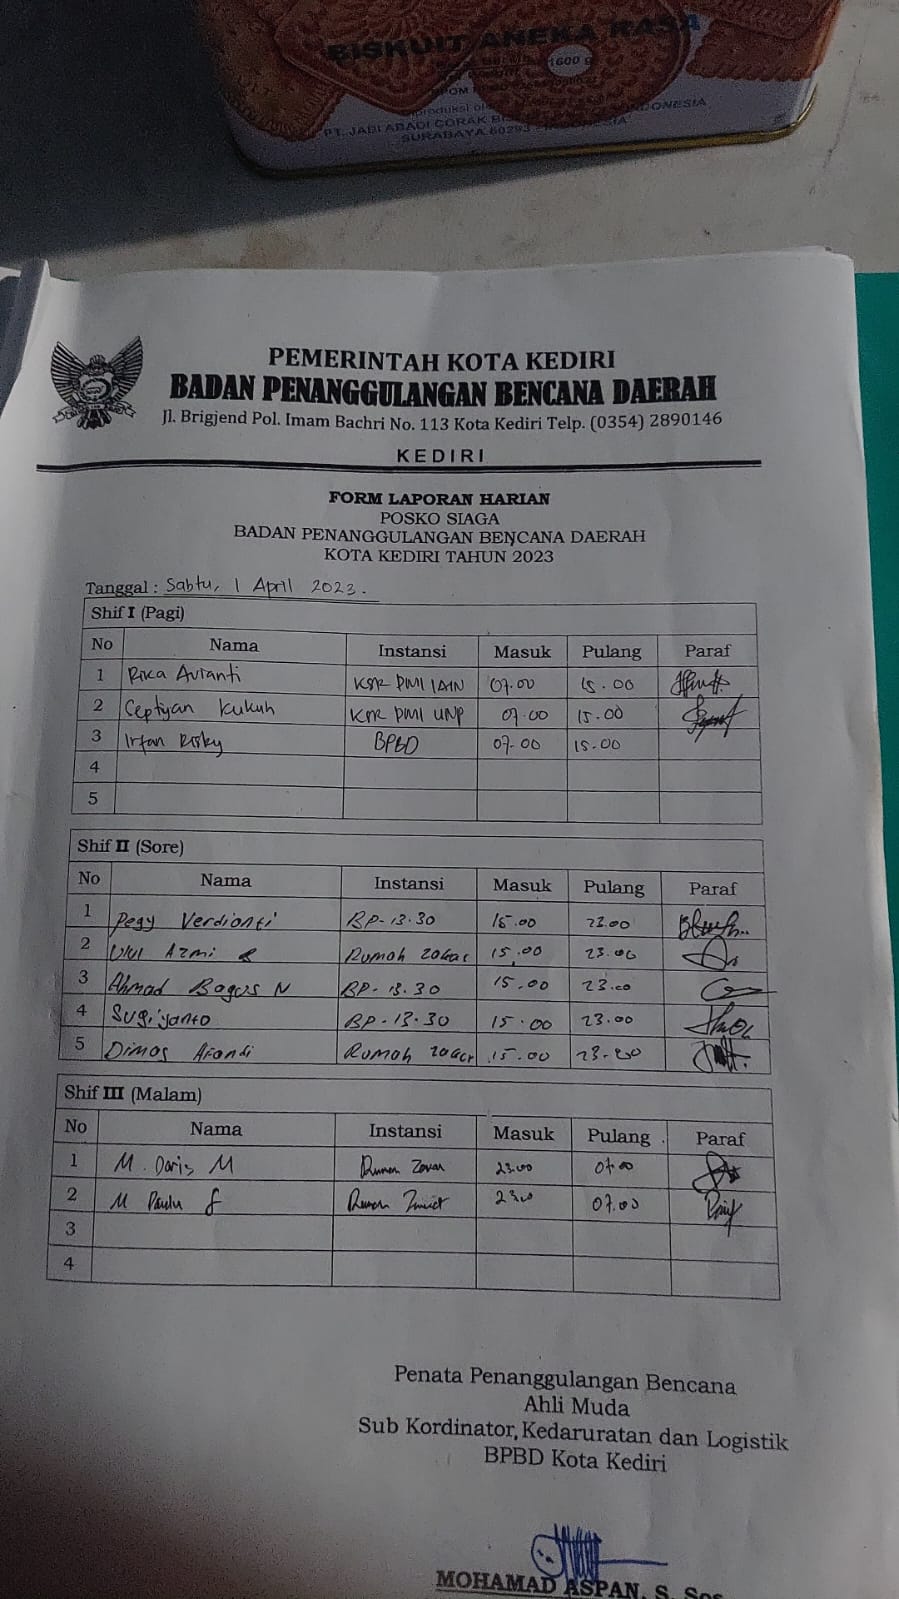 BISKUIT ANEKA RASA
1600 g
PT. JADI ABADI CORAK
SURABAYA 60293
PEMERINTAH KOTA KEDIRI
BADAN PENANGGULANGAN BENCANA DAERAH
Jl. Brigjend Pol. Imam Bachri No. 113 Kota Kediri Telp. (0354) 2890146
KEDIRI
FORM LAPORAN HARIAN
POSKO SIAGA
BADAN PENANGGULANGAN BENCANA DAERAH
KOTA KEDIRI TAHUN 2023
Tanggal : Sabtu, 1 April 2023.
Shif I (Pagi)
No Nama Instansi Masuk Pulang Paraf
1 Rika Avianti KSR PMI IAIN 07.00 15.00
2 Ceptyan Kukuh KSR PMI UNP 07.00 15.00
3 Irfan Risky BPBD 07.00 15.00
4
5
Shif II (Sore)
No Nama Instansi Masuk Pulang Paraf
1 Pegy Verdianti BP-13.30 15.00 23.00
2 Azmi Rumah zakat 15.00 23.00
3 Ahmad Bagas N BP-13.30 15.00 23.00
4 Sugiyanto BP-13.30 15.00 23.00
5 Dimas Afandi Rumah zakat 15.00 23.00
Shif III (Malam)
No Nama Instansi Masuk Pulang Paraf
1 M. Daris M 23.00 07.00
2 M 23.00 07.00
3
4
Penata Penanggulangan Bencana
Ahli Muda
Sub Kordinator, Kedaruratan dan Logistik
BPBD Kota Kediri
MOHAMAD ASPAN, S. Sos